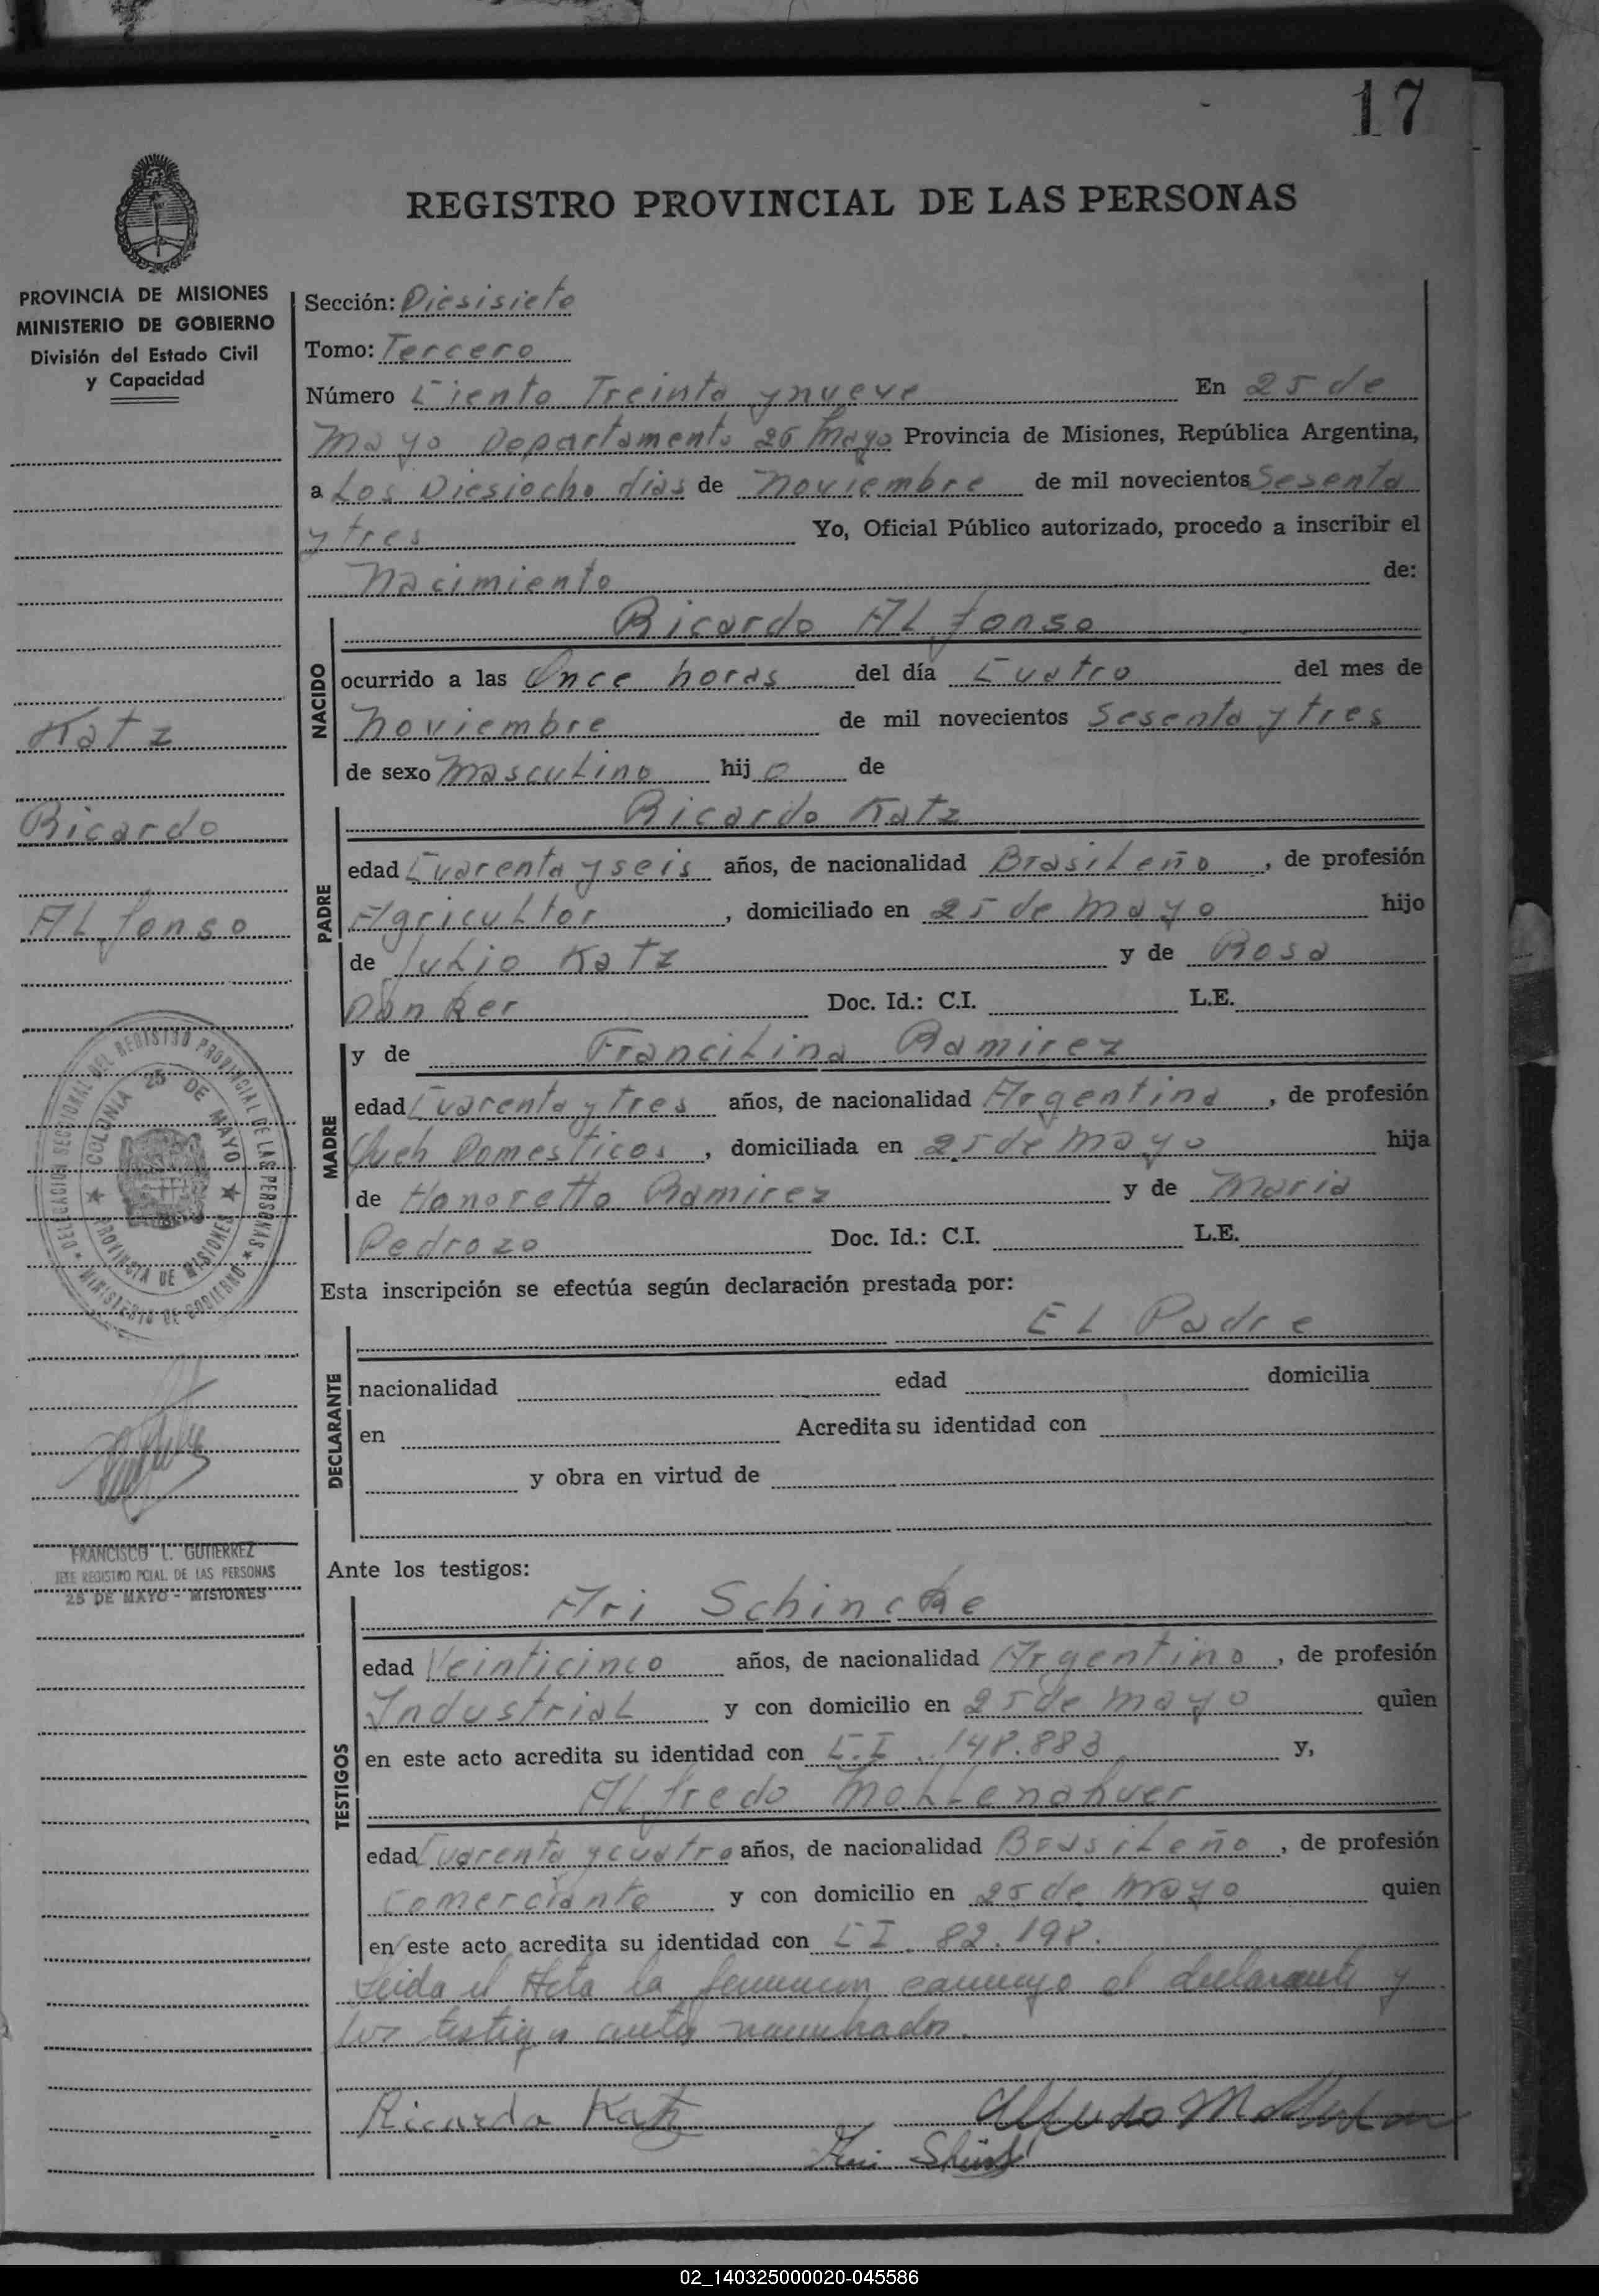 17
REGISTRO PROVINCIAL DE LAS PERSONAS
PROVINCIA DE MISIONES
MINISTERIO DE GOBIERNO
División del Estado Civil
y Capacidad
Katz
Ricardo
ALfonso
DELEGACION SECCIONAL DEL REGISTRO PROVINCIAL DE LAS PERSONAS * MINISTERIO DE GOBIERNO *
COLONIA 25 DE MAYO
PROVINCIA DE MISIONES
FRANCISCO L. GUTIERREZ
JEFE REGISTRO PCIAL. DE LAS PERSONAS
25 DE MAYO - MISIONES
Sección: Diesisiete
Tomo: Tercero
Número Ciento Treinta y nueve En 25 de
Mayo Departamento 25 Mayo Provincia de Misiones, República Argentina,
a Los Diesiocho dias de Noviembre de mil novecientos Sesenta
y tres Yo, Oficial Público autorizado, procedo a inscribir el
Nacimiento de:
NACIDO
Ricardo ALfonso
ocurrido a las Once horas del día Cuatro del mes de
Noviembre de mil novecientos Sesenta y tres
de sexo Masculino hijo de
PADRE
Ricardo Katz
edad Cuarenta y seis años, de nacionalidad BrasiLeño, de profesión
Agricultor, domiciliado en 25 de Mayo hijo
de Julio Katz y de Rosa
Danker Doc. Id.: C.I. L.E.
MADRE
y de FranciLina Ramirez
edad Cuarenta y tres años, de nacionalidad Argentina, de profesión
Queh Domesticos, domiciliada en 25 de Mayo hija
de Honoretto Ramirez y de Maria
Pedrozo Doc. Id.: C.I. L.E.
Esta inscripción se efectúa según declaración prestada por:
DECLARANTE
EL Padre
nacionalidad edad domicilia
en Acredita su identidad con
y obra en virtud de
Ante los testigos:
TESTIGOS
Ari Schincke
edad Veinticinco años, de nacionalidad Argentino, de profesión
IndustriaL y con domicilio en 25 de Mayo quien
en este acto acredita su identidad con C.I. 148.883 y,
ALfredo MohLenahuer
edad Cuarenta y cuatro años, de nacionalidad BrasiLeño, de profesión
Comerciante y con domicilio en 25 de Mayo quien
en este acto acredita su identidad con C I. 82.198.
Leida el Acta la firmaron conmigo el declarante y
los testigos antes nombrados.
Ricardo Katz
Alfredo
Ari
02_140325000020-045586